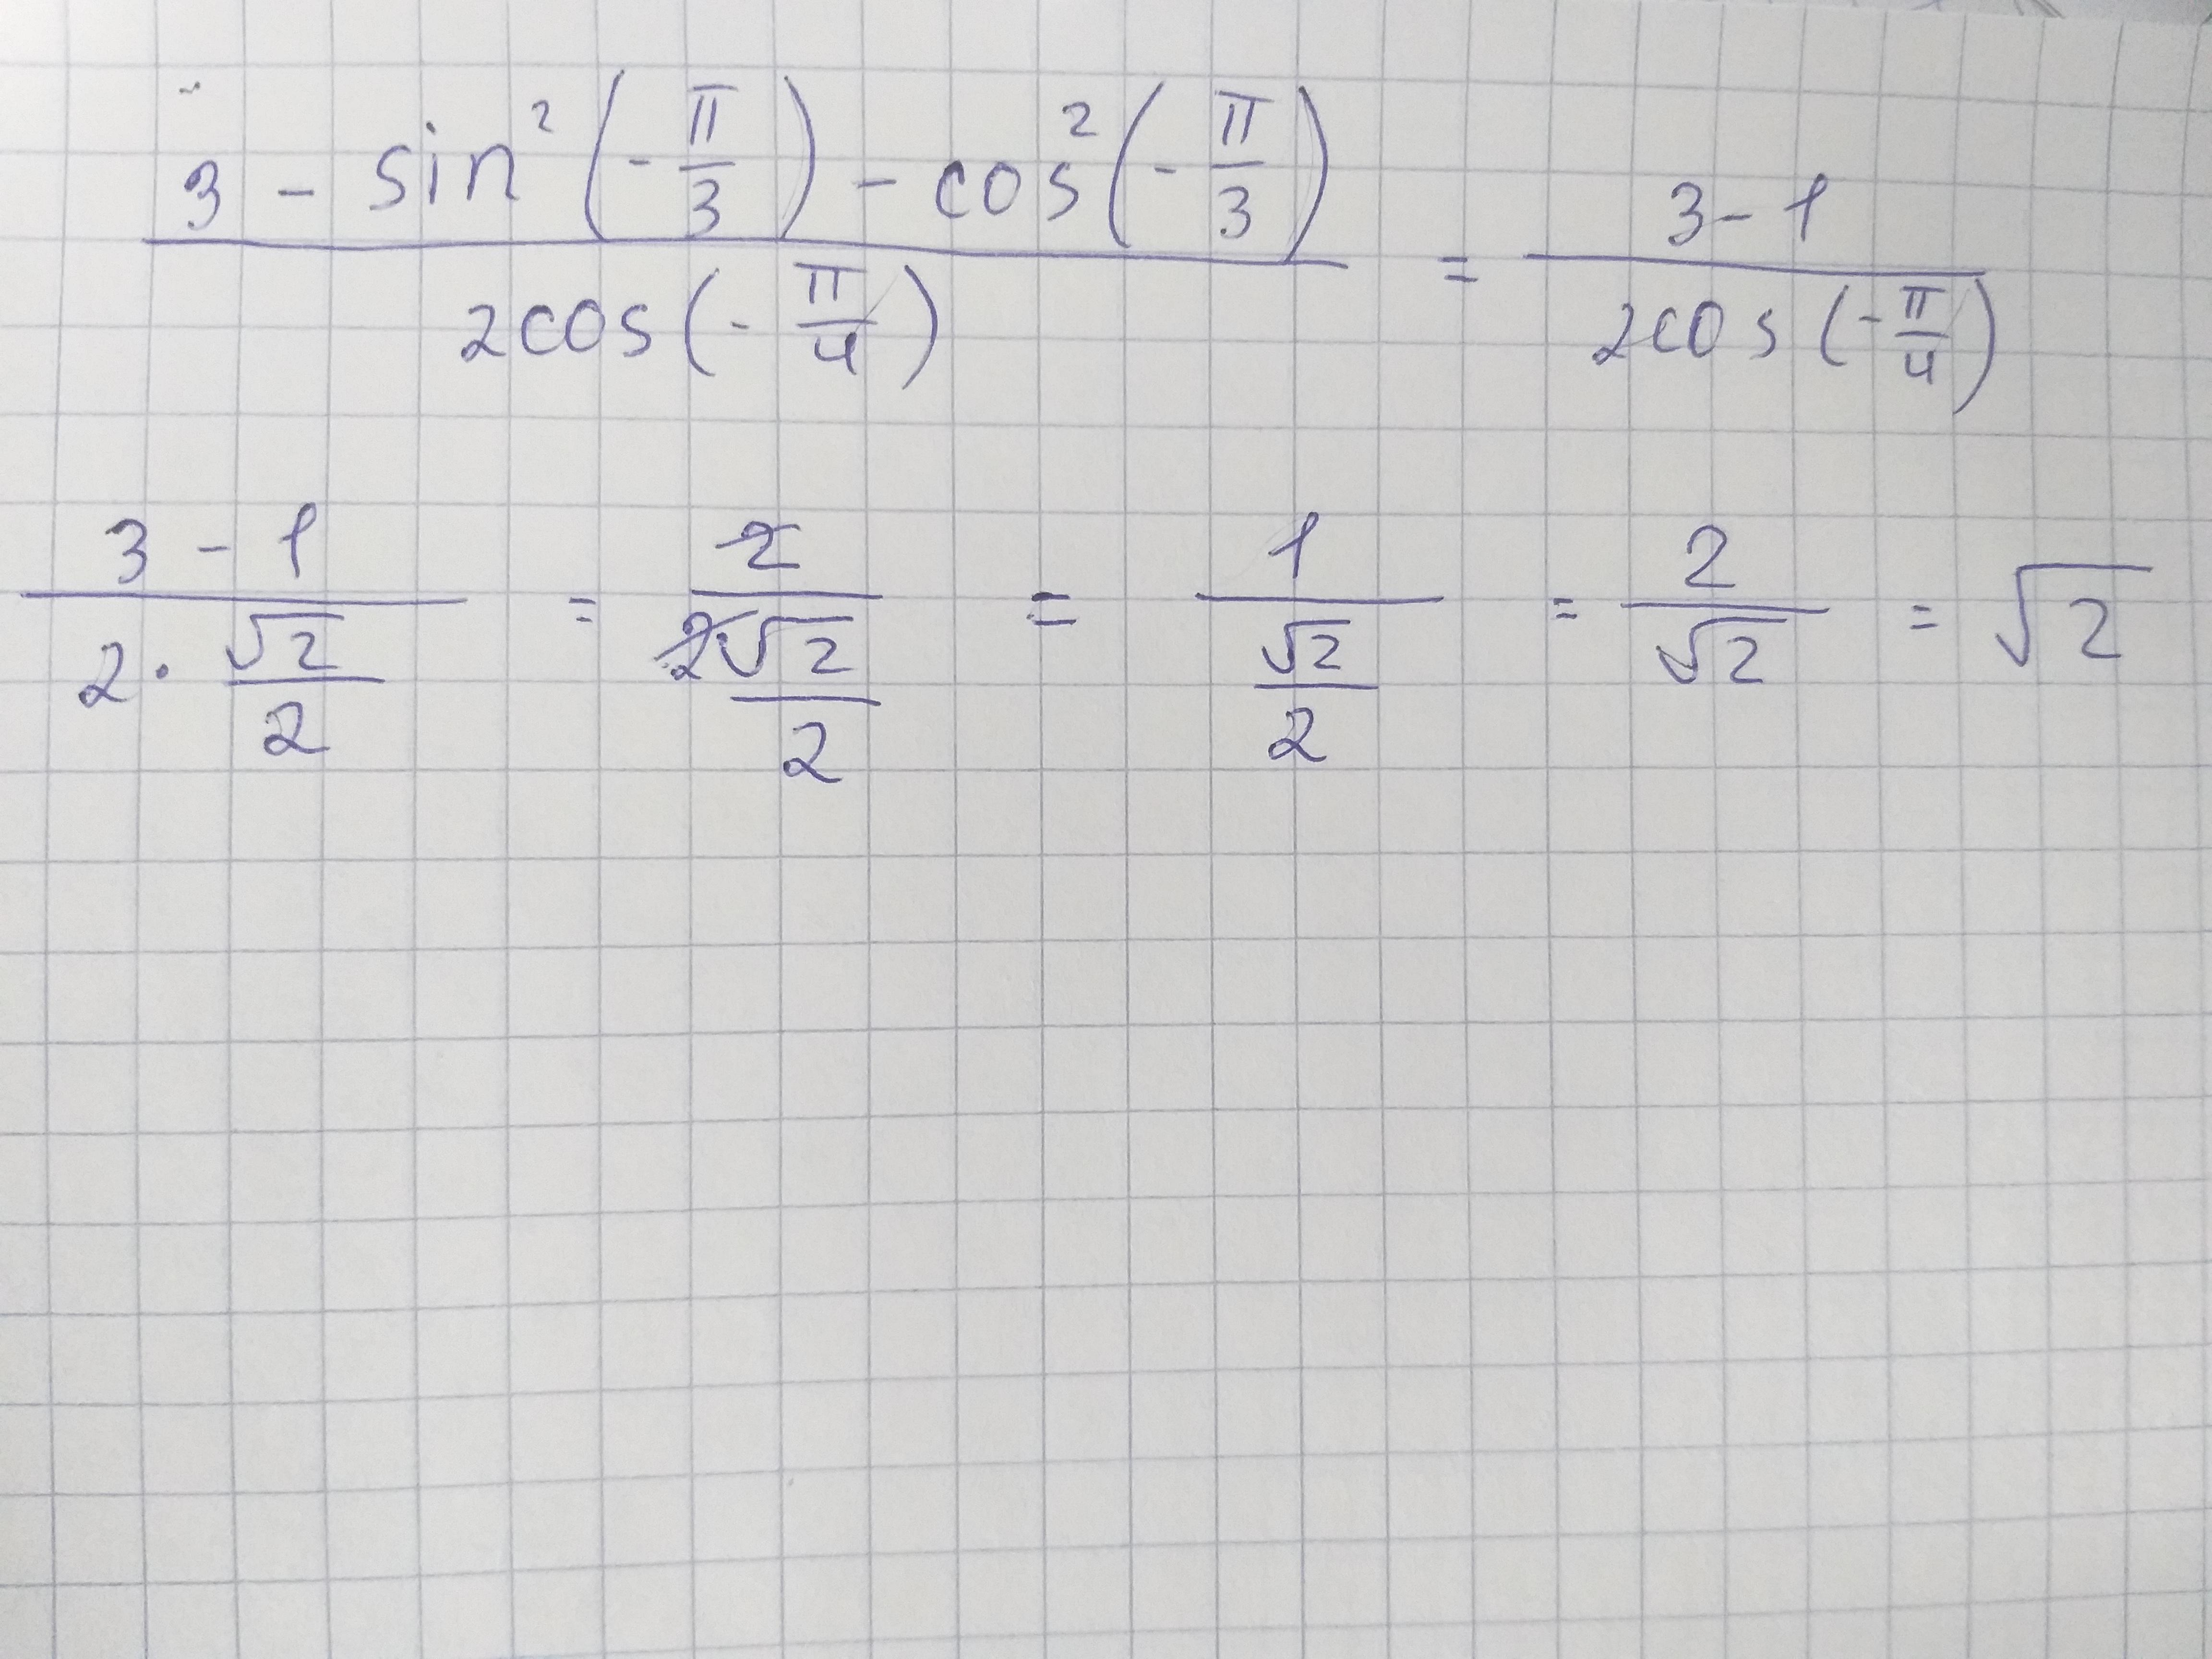 (3 - sin²(-π/3) - cos²(-π/3)) / (2cos(-π/4)) = (3-1) / (2cos(-π/4))
(3 - 1) / (2·(√2/2)) = 2 / (2√2/2) = 1 / (√2/2) = 2/√2 = √2